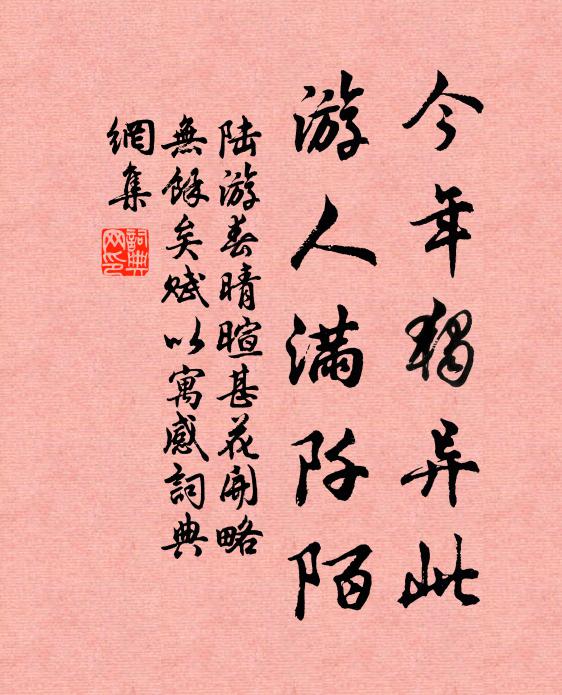 今年独异此
游人满阡陌
陆游春晴暄甚花开略
無餘矣赋以寓感詞典
網集
詞典
网印